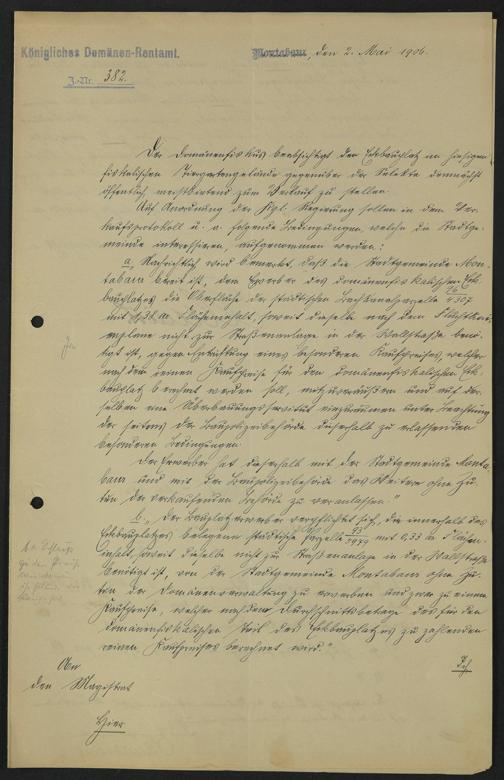 Königliches Domänen-Rentamt.
Montabaur, den 2. Mai 1906.
J.-Nr. 382.
Der Domänenfiskus beabsichtigt den Eckbauplatz im hiesigen
fiskalischen Tiergartengelände gegenüber der Selekte demnächst
öffentlich meistbietend zum Verkauf zu stellen.
Auf Anordnung der Kgl. Regierung sollen in dem Ver-
kaufsprotokoll u. a. folgende Bedingungen, welche die Stadtge-
meinde interessieren, aufgenommen werden:
a, Nachrichtlich wird bemerkt, daß die Stadtgemeinde Mon-
tabaur bereit ist, dem Erwerber des domänenfiskalischen Eck-
bauplatzes die Oberfläche der städtischen Bachkanalparzelle 4307
mit a Flächeninhalt, soweit dieselbe nach dem Fluchtlinien-
plane nicht zur Straßenanlage in der Wallstraße benö-
tigt ist, gegen Entrichtung eines besonderen Kaufpreises, welcher
nach dem reinen Kaufpreise für den domänenfiskalischen Eck-
bauplatz berechnet werden soll, mitzuveräußern und auf der-
selben eine Überbauungsservitut einzuräumen unter Beachtung
der seitens der Baupolizeibehörde dieserhalb zu erlassenden
besonderen Bedingungen.
Der Erwerber hat dieserhalb mit der Stadtgemeinde Monta-
baur und mit der Baupolizeibehörde das Weitere ohne Zu-
tun der verkaufenden Behörde zu veranlassen."
b, "Der Bauplatzerwerber verpflichtet sich, die innerhalb des
Eckbauplatzes belegene städtische Parzelle mit 0,33 a Flächen-
inhalt, soweit dieselbe nicht zu Straßenanlage in der Wallstraße
benötigt ist, von der Stadtgemeinde Montabaur ohne Zu-
tun der Domänenverwaltung zu erwerben und zwar zu einem
Kaufpreise, welcher nach dem Durchschnittsbetrag des für den
domänenfiskalischen Teil des Eckbauplatzes zu zahlenden
reinen Kaufpreises berechnet wird."
An
den Magistrat
Hier
Ich